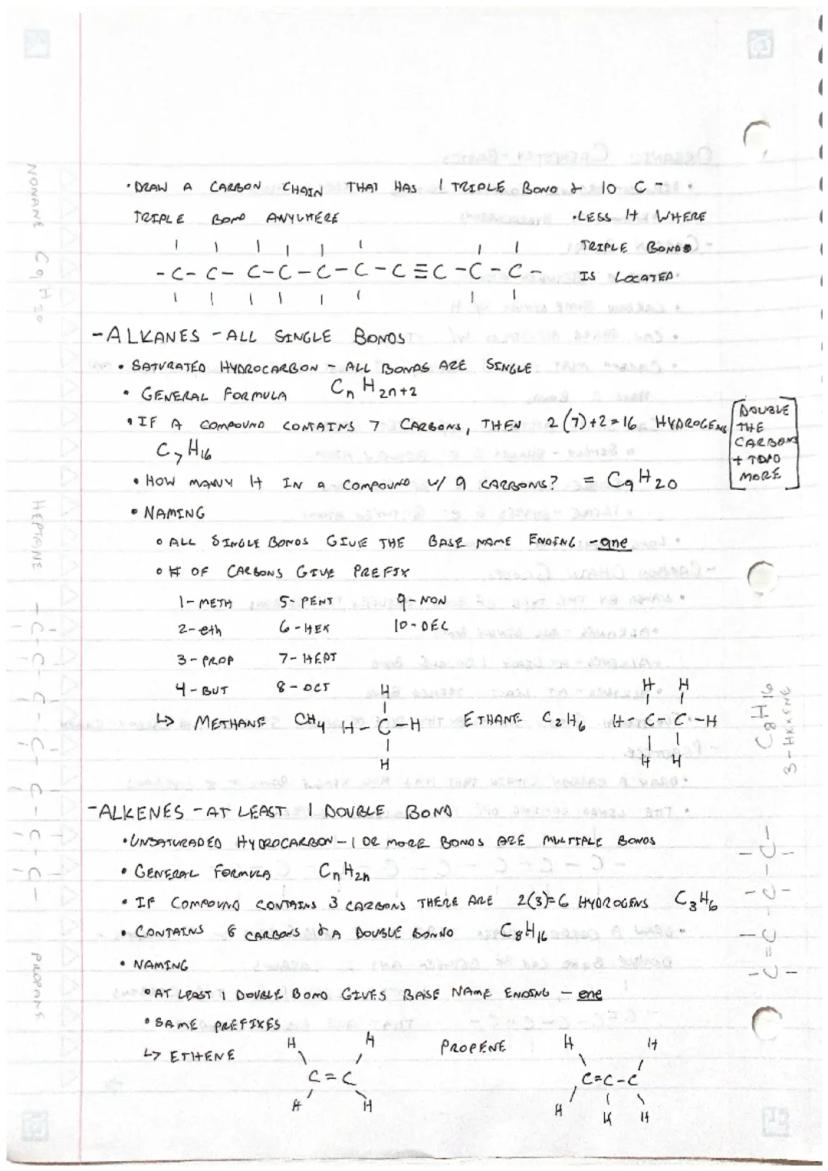 • DRAW A CARBON CHAIN THAT HAS 1 TRIPLE BOND & 10 C -
TRIPLE BOND ANYWHERE
• LESS H WHERE
TRIPLE BONDS
IS LOCATED
- C - C - C - C - C - C - C ≡ C - C - C -
- ALKANES - ALL SINGLE BONDS
• SATURATED HYDROCARBON - ALL BONDS ARE SINGLE
• GENERAL FORMULA CnH2n+2
• IF A COMPOUND CONTAINS 7 CARBONS, THEN 2(7)+2=16 HYDROGENS
C7H16
[DOUBLE
THE
CARBONS
+ TWO
MORE]
• HOW MANY H IN A COMPOUND W/ 9 CARBONS? = C9H20
• NAMING
◦ ALL SINGLE BONDS GIVE THE BASE NAME ENDING -ane
◦ # OF CARBONS GIVE PREFIX
1 - METH 5 - PENT 9 - NON
2 - eth 6 - HEX 10 - DEC
3 - PROP 7 - HEPT
4 - BUT 8 - OCT
↳ METHANE CH4
H
H - C - H
H
ETHANE C2H6
H H
H - C - C - H
H H
- ALKENES - AT LEAST 1 DOUBLE BOND
• UNSATURADED HYDROCARBON - 1 OR MORE BONDS ARE MULTIPLE BONDS
• GENERAL FORMULA CnH2n
• IF COMPOUND CONTAINS 3 CARBONS THERE ARE 2(3)=6 HYDROGENS C3H6
• CONTAINS 8 CARBONS & A DOUBLE BONNO C8H16
• NAMING
◦ AT LEAST 1 DOUBLE BOND GIVES BASE NAME ENDING - ene
• SAME PREFIXES
↳ ETHENE
H H
C = C
H H
PROPENE
H H
C=C-C
H H H
NONANE C9H20
HEPTANE - C-C-C-C-C-C-C -
PROPANE
C8H16
C=C-C-C-C-